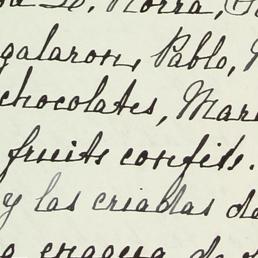 Norra,
galaron, Pablo,
chocolates, Mar
fruits confits.
y las criadas de